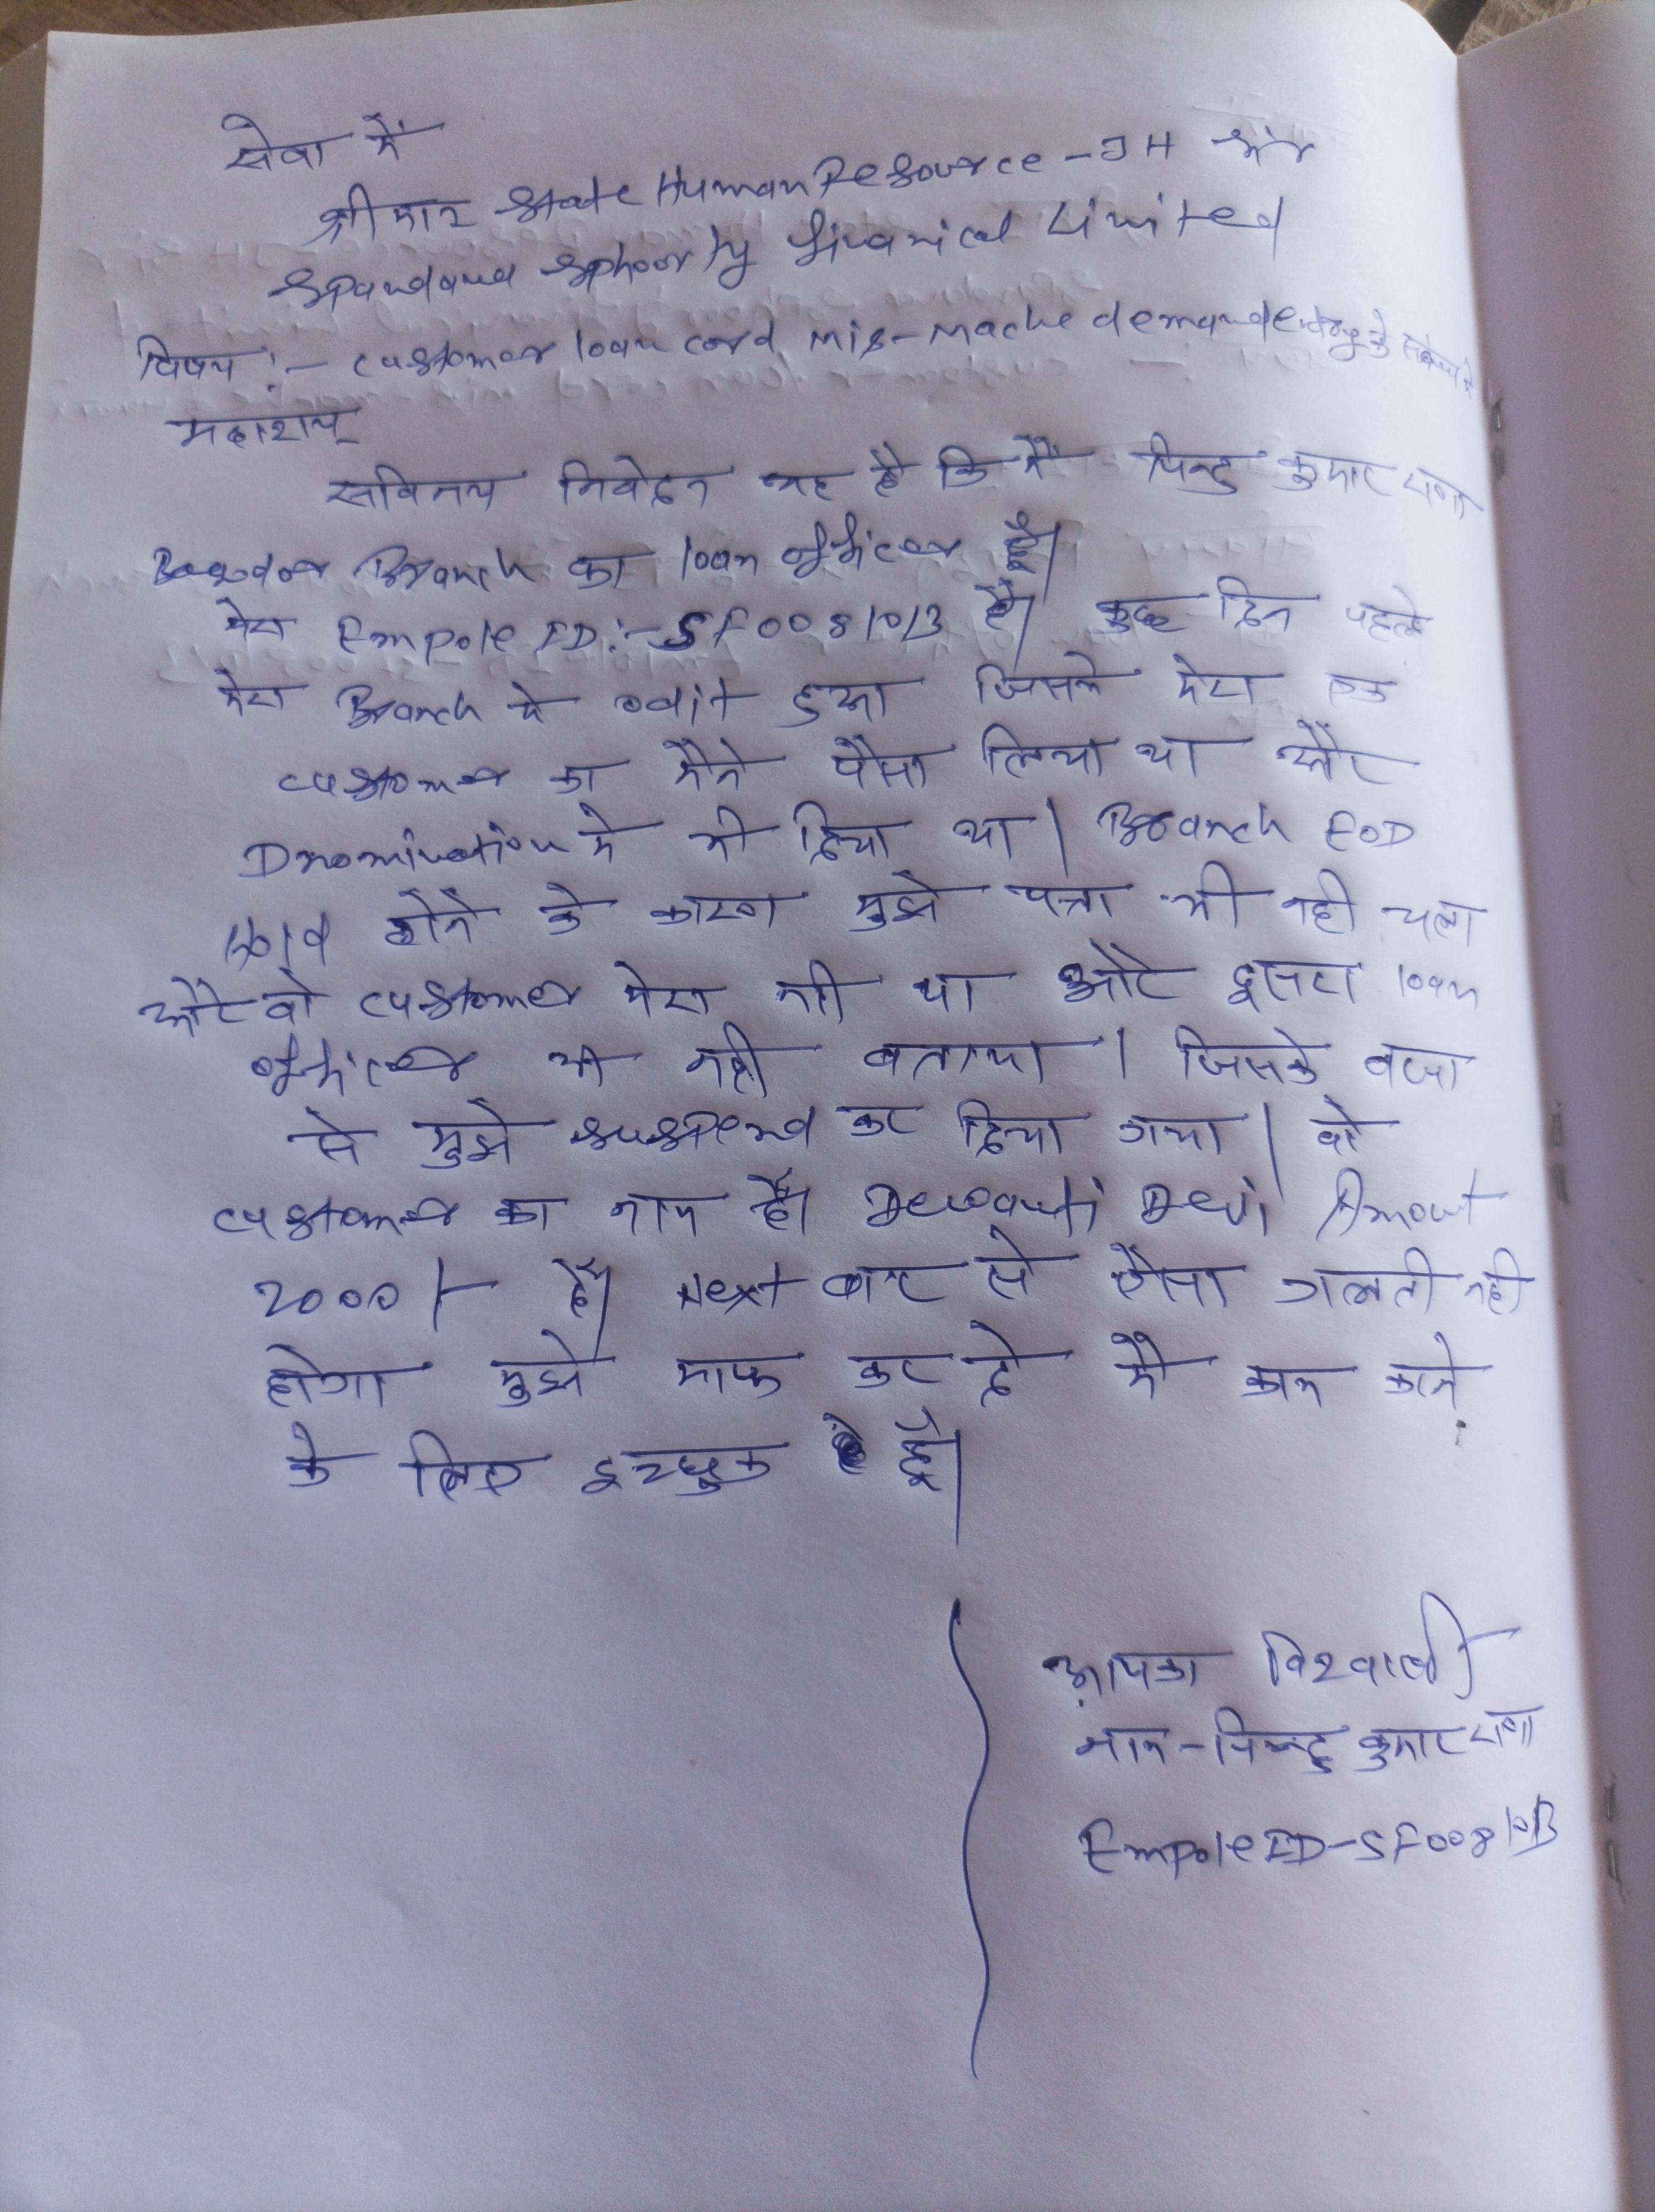 सेवा में
श्रीमान State Human Resource - JH
Spandana Sphoorty finanical Limited
विषय :- customer loan card mis-mache demand entry के संबंध में
महाशय
सविनय निवेदन यह है कि मैं पिन्टु कुमार राणा
Branch का loan officer हूँ।
मेरा Empole ID:- SF0081013 है। कुछ दिन पहले
मेरा Branch मे odit हुआ जिसमे मेरा एक
customer का मैने पैसा लिया था और
Dnomination मे भी दिया था। Branch EOD
Hold होने के कारण मुझे पता भी नही चला
और वो customer मेरा भी था और दुसरा loan
officer भी नही बताया। जिसके वजा
से मुझे suspend कर दिया गया। वो
customer का नाम है। Dewanti Devi Amout
2000/- है। Next बार से ऐसा गलती नही
होगा मुझे माफ कर दे मै काम करने
के लिए इच्छुक हूँ।
आपका विश्वासी
नाम - पिन्टु कुमार राणा
Empole ID - SF0081013